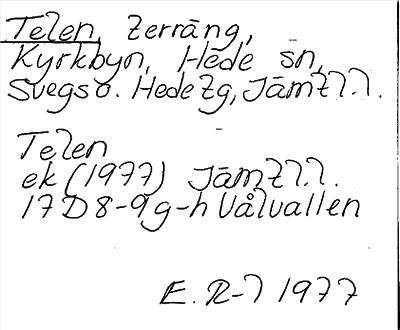 Teten, terräng,
Kyrkbyn, Hede sn,
Svegs o. Hede tg, Jämtl.l.
Teten
ek (1977) Jämtl.l.
17D8-9g-h Vålvallen
E. R-l 1977